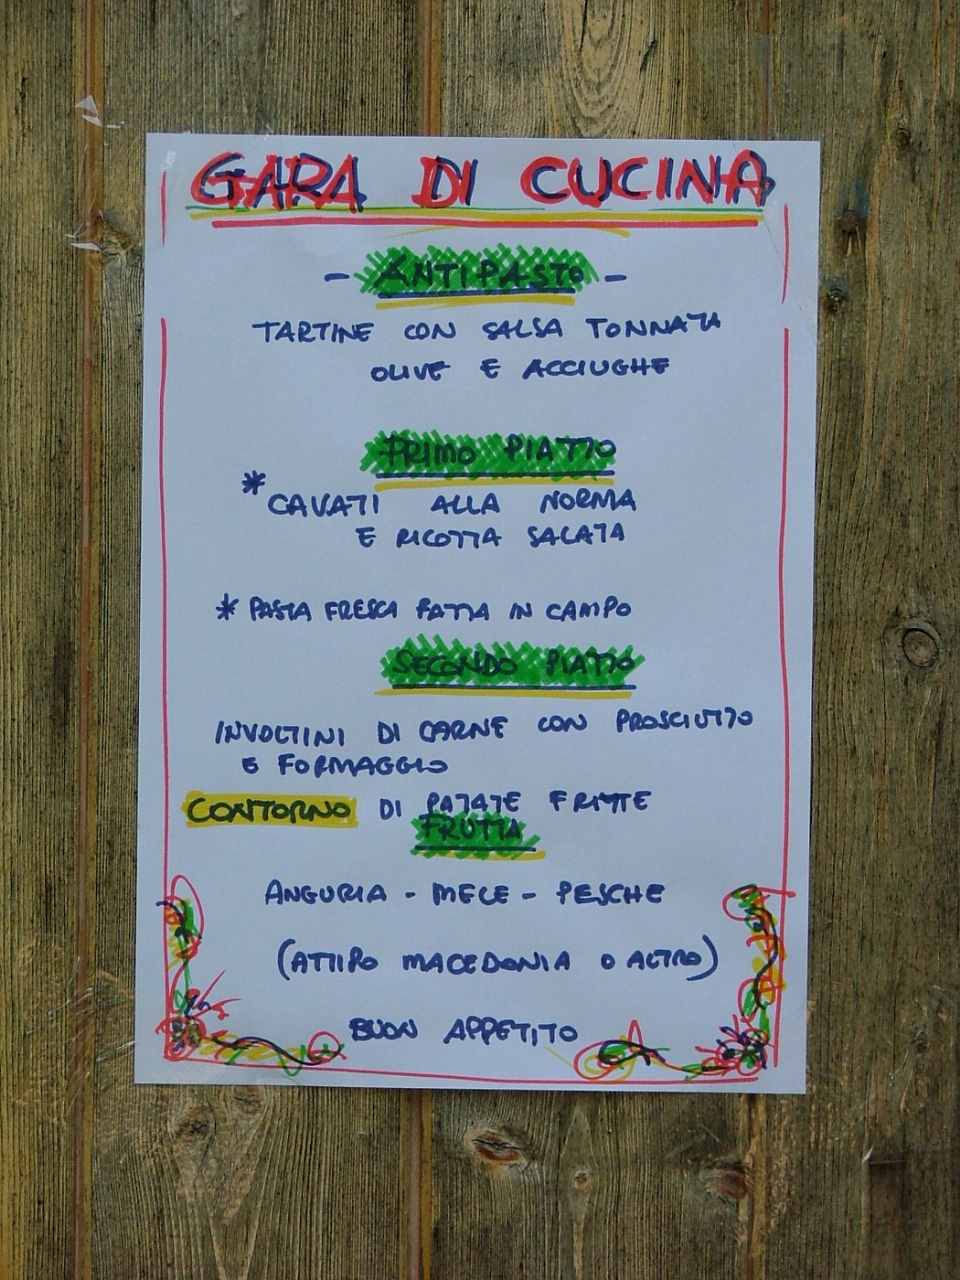 GARA DI CUCINA
- ANTIPASTO -
TARTINE CON SALSA TONNATA
OLIVE E ACCIUGHE
PRIMO PIATTO
* CAVATI ALLA NORMA
E RICOTTA SALATA
* PASTA FRESCA FATTA IN CAMPO
SECONDO PIATTO
INVOLTINI DI CARNE CON PROSCIUTTO
E FORMAGGIO
CONTORNO DI PATATE FRITTE
FRUTTA
ANGURIA - MELE - PESCHE
(ATTIPO MACEDONIA O ALTRO)
BUON APPETITO